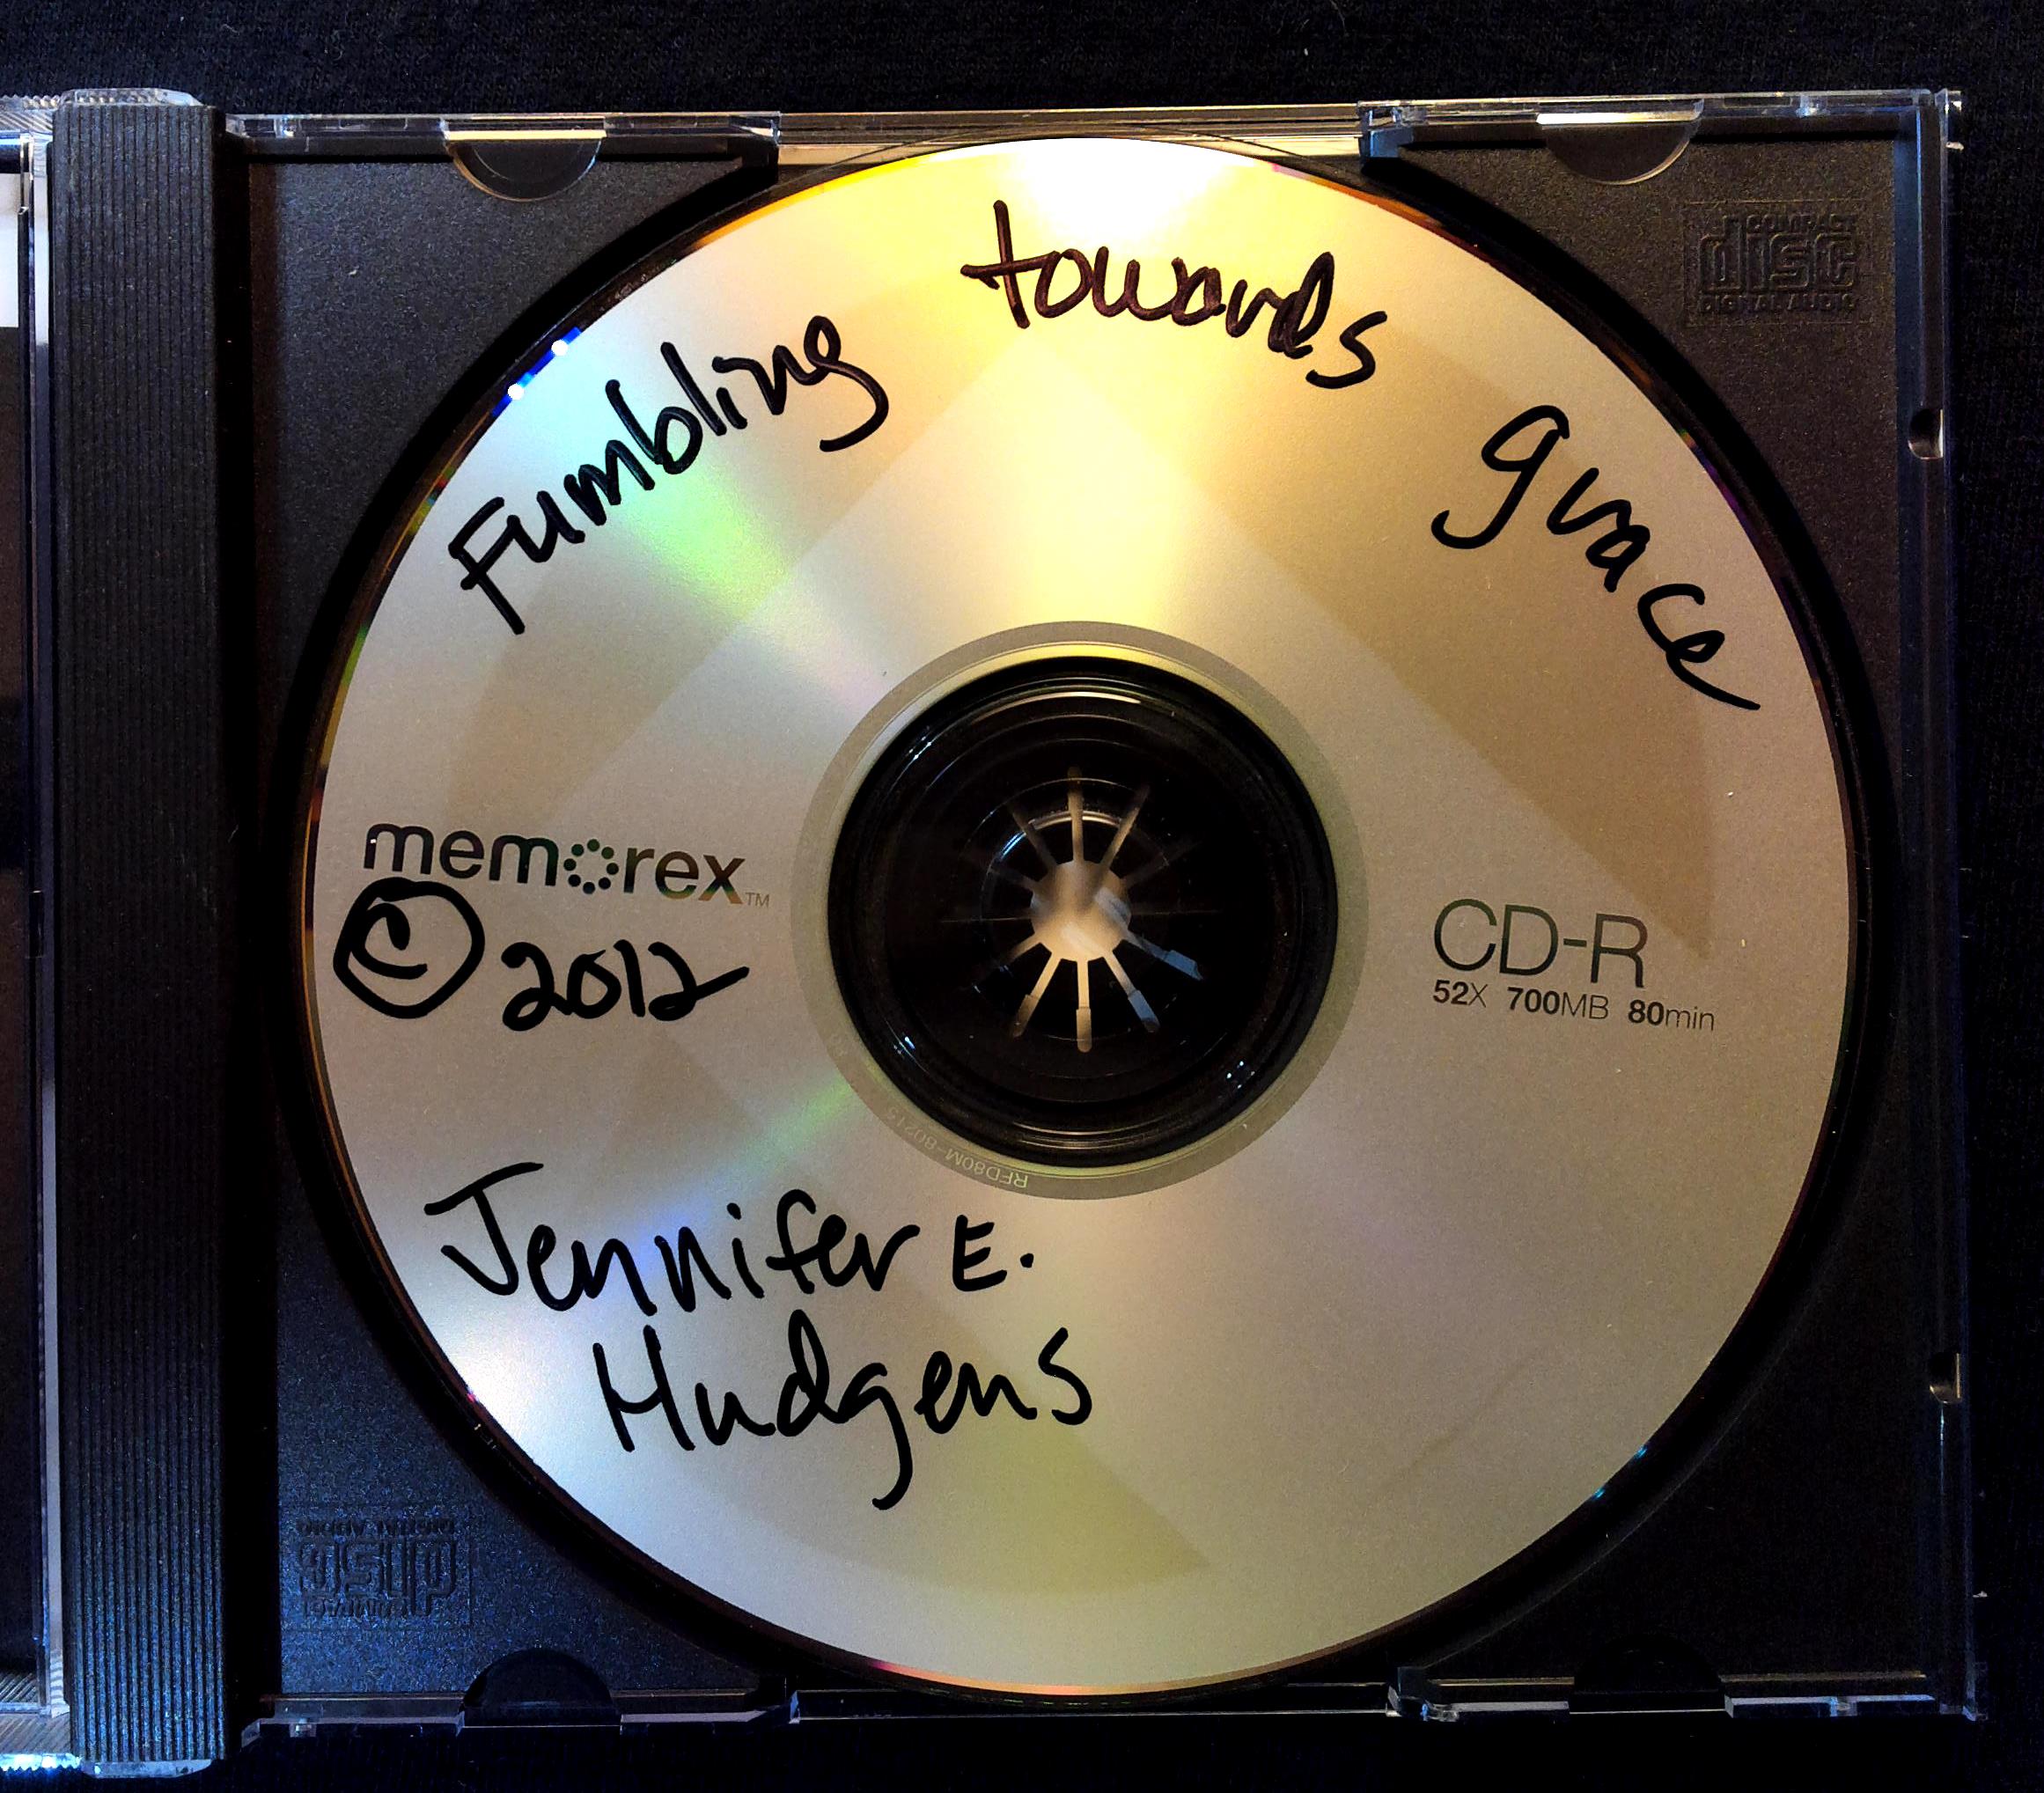 Fumbling towards grace
COMPACT
disc
DIGITAL AUDIO
memorex™
© 2012
CD-R
52X 700MB 80min
RFD80M-80215
Jennifer E.
Hudgens
COMPACT
disc
DIGITAL AUDIO